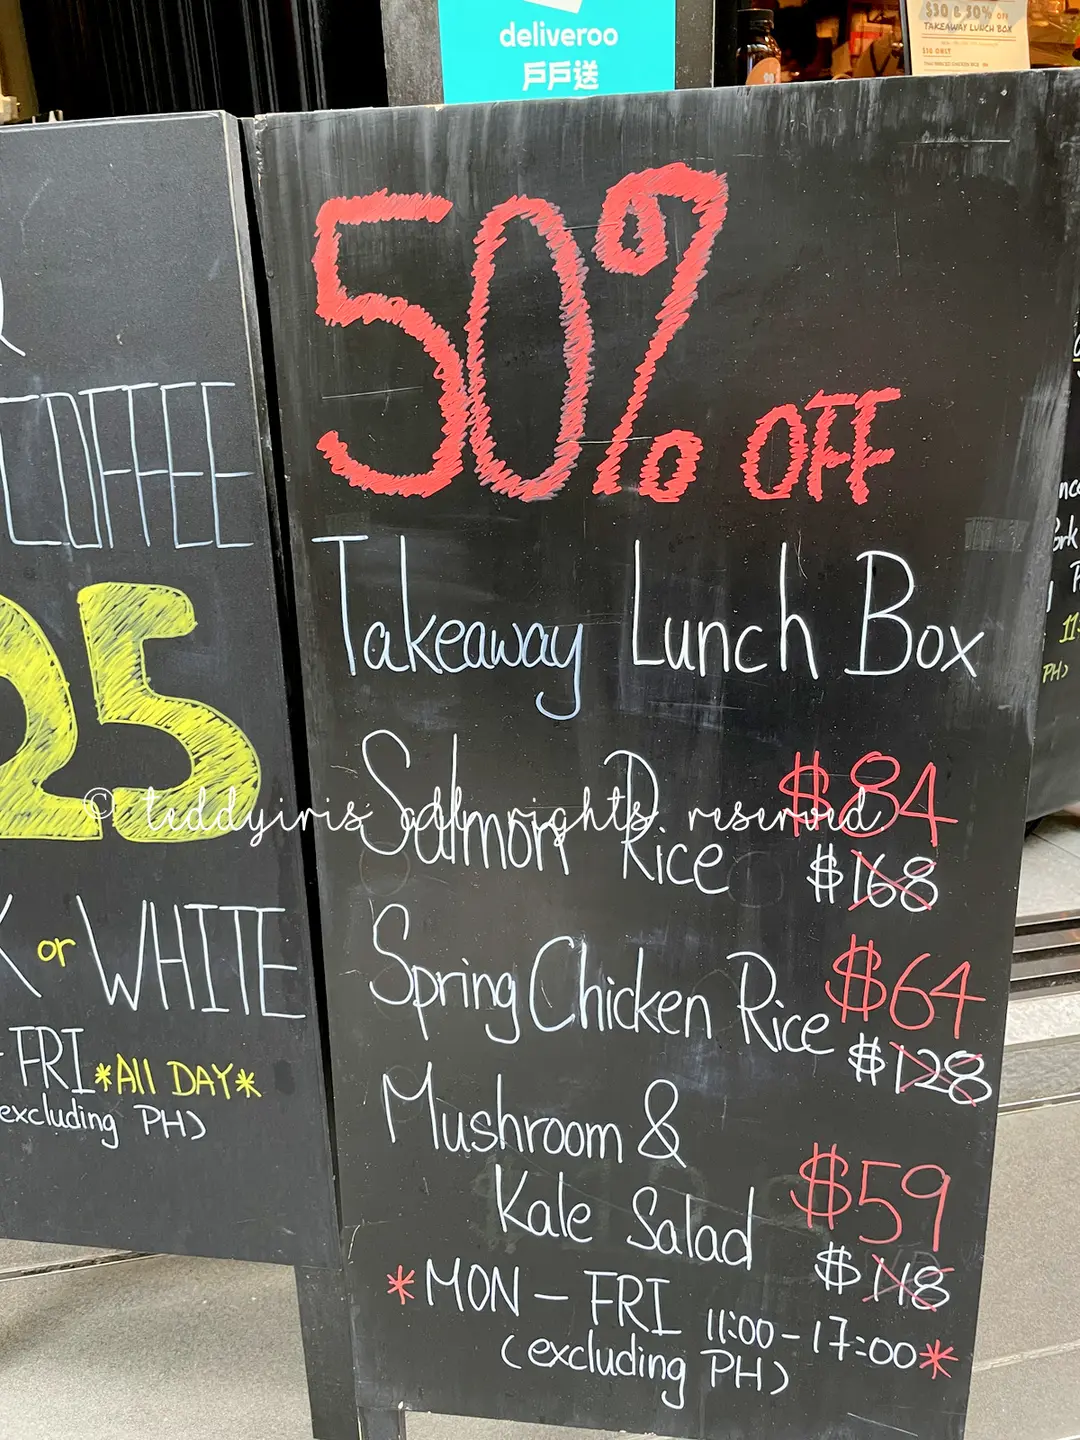 deliveroo
戶戶送
$30 & 50% Off
TAKEAWAY LUNCH BOX
COFFEE
25
or WHITE
FRI *All DAY*
(excluding PH)
50% OFF
Takeaway Lunch Box
Salmon Rice $84
$168
Spring Chicken Rice $64
$128
Mushroom &
Kale Salad $59
$118
*MON - FRI 11:00 - 17:00*
(excluding PH)
© teddyiris all rights reserved
PH)